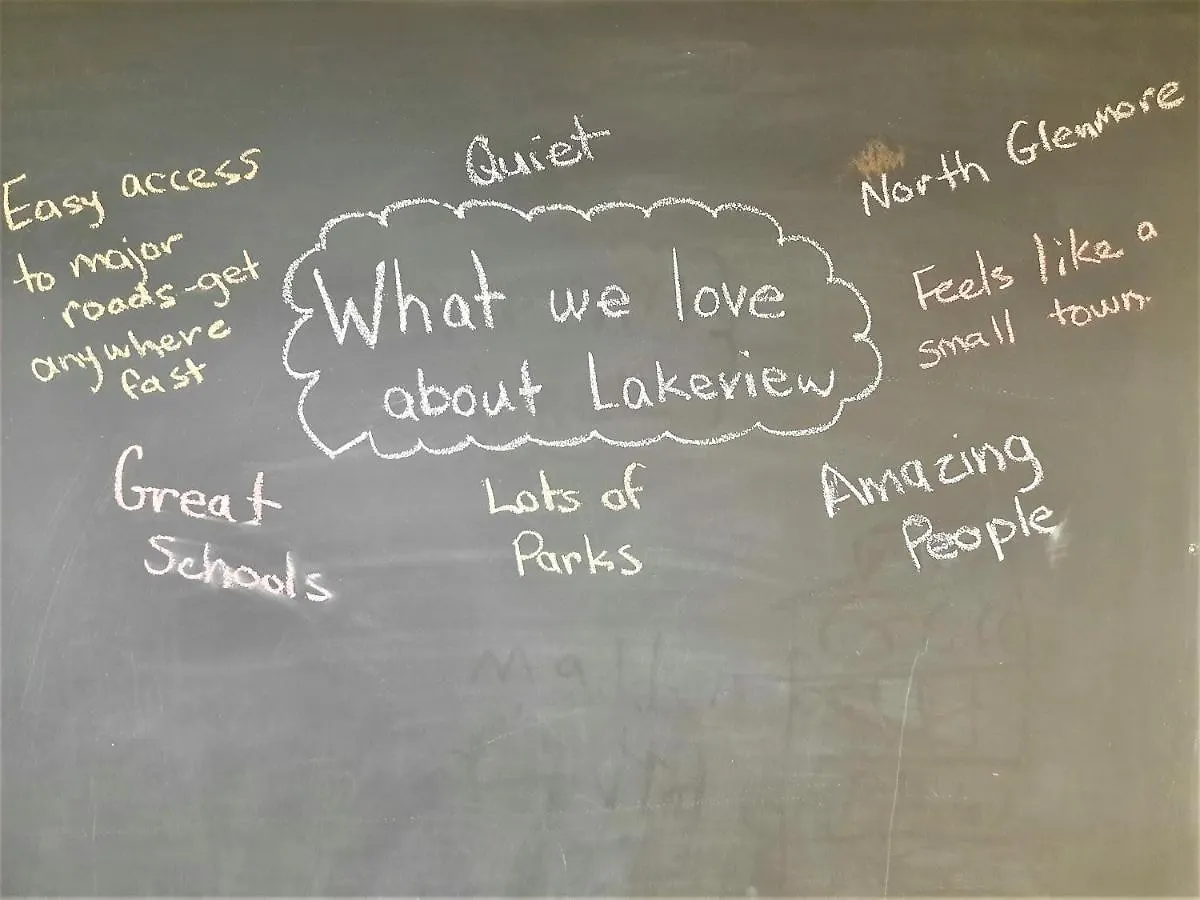 Quiet
North Glenmore
Easy access
to major
roads-get
anywhere
fast
What we love
about Lakeview
Feels like a
small town.
Great
Schools
Lots of
Parks
Amazing
People